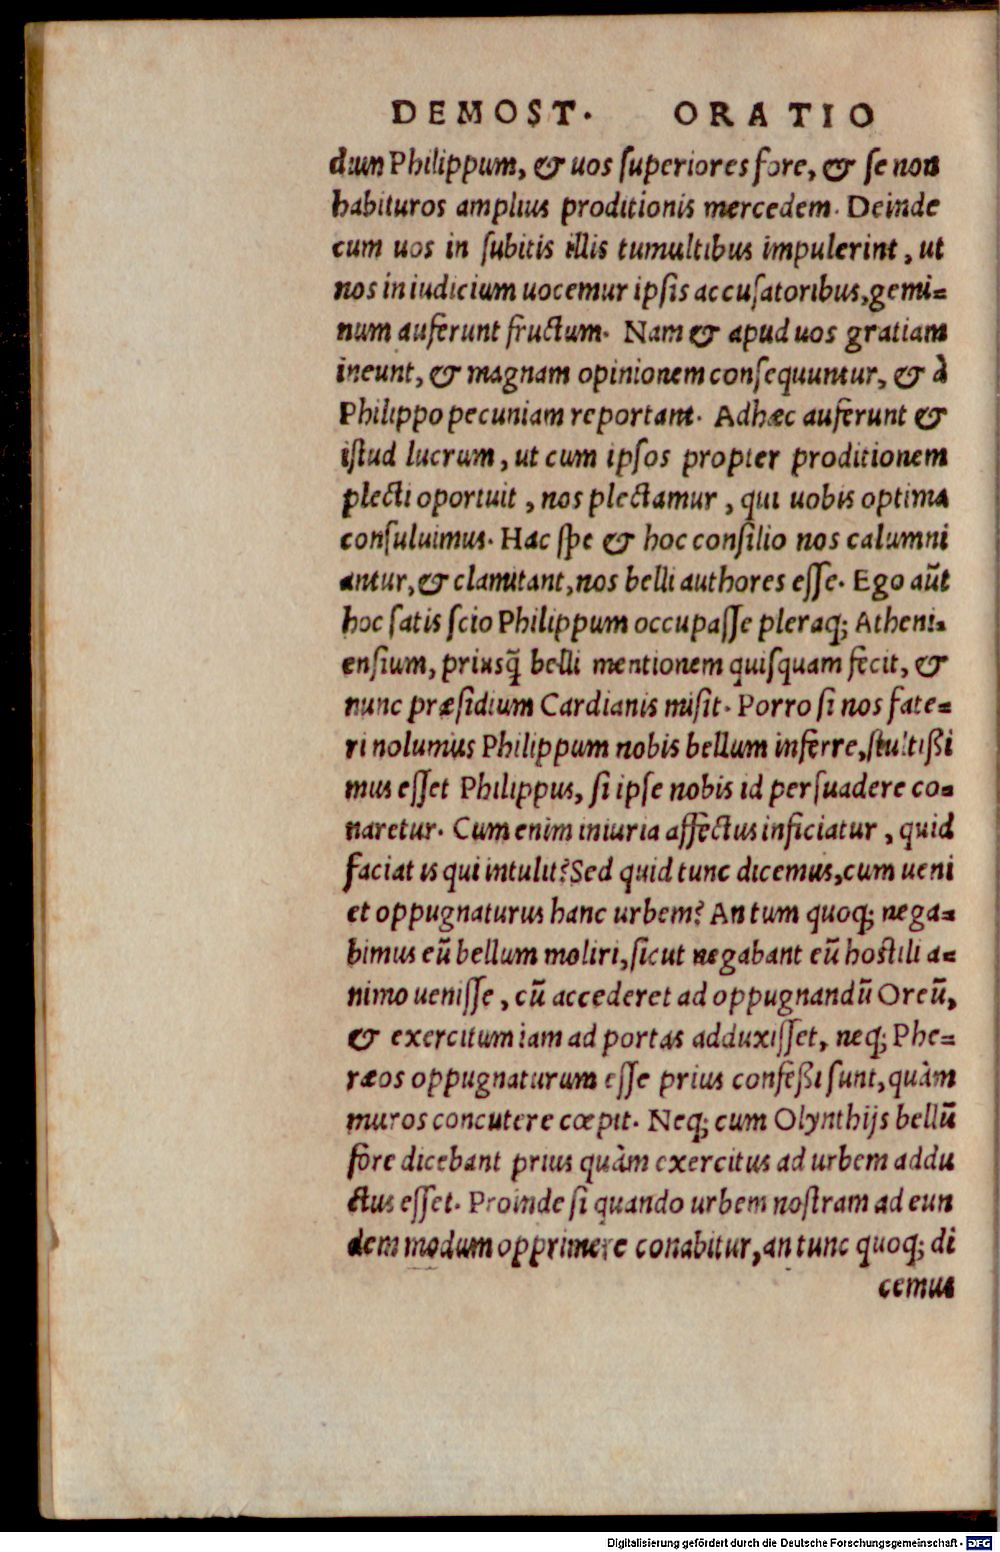 DEMOST. ORATIO
dum Philippum, & uos ſuperiores fore, & ſe non
habituros amplius proditionis mercedem. Deinde
cum uos in ſubitis illis tumultibus impulerint, ut
nos in iudicium uocemur ipſis accuſatoribus, gemi=
num auferunt fructum. Nam & apud uos gratiam
ineunt, & magnam opinionem conſequuntur, & à
Philippo pecuniam reportant. Ad hæc auferunt &
iſtud lucrum, ut cum ipſos propter proditionem
plecti oportuit, nos plectamur, qui uobis optima
conſuluimus. Hac ſpe & hoc conſilio nos calumni
antur, & clamitant, nos belli authores eſſe. Ego aūt
hoc ſatis ſcio Philippum occupaſſe pleraq; Atheni=
enſium, priusq̃ belli mentionem quiſquam fecit, &
nunc præſidium Cardianis miſit. Porro ſi nos fate=
ri nolumus Philippum nobis bellum inferre, ſtultißi
mus eſſet Philippus, ſi ipſe nobis id perſuadere co=
naretur. Cum enim iniuria affectus inficiatur, quid
faciat is qui intulit? Sed quid tunc dicemus, cum ueni
et oppugnaturus hanc urbem? An tum quoq; nega=
bimus eũ bellum moliri, ſicut negabant eũ hoſtili a=
nimo ueniſſe, cũ accederet ad oppugnandũ Oreũ,
& exercitum iam ad portas adduxiſſet, neq; Phe=
ræos oppugnaturum eſſe prius confeßi ſunt, quàm
muros concutere cœpit. Neq; cum Olynthijs bellũ
fore dicebant prius quàm exercitus ad urbem addu
ctus eſſet. Proinde ſi quando urbem noſtram ad eun
dem modum opprimere conabitur, an tunc quoq; di
cemus
Digitalisierung gefördert durch die Deutsche Forschungsgemeinschaft - DFG